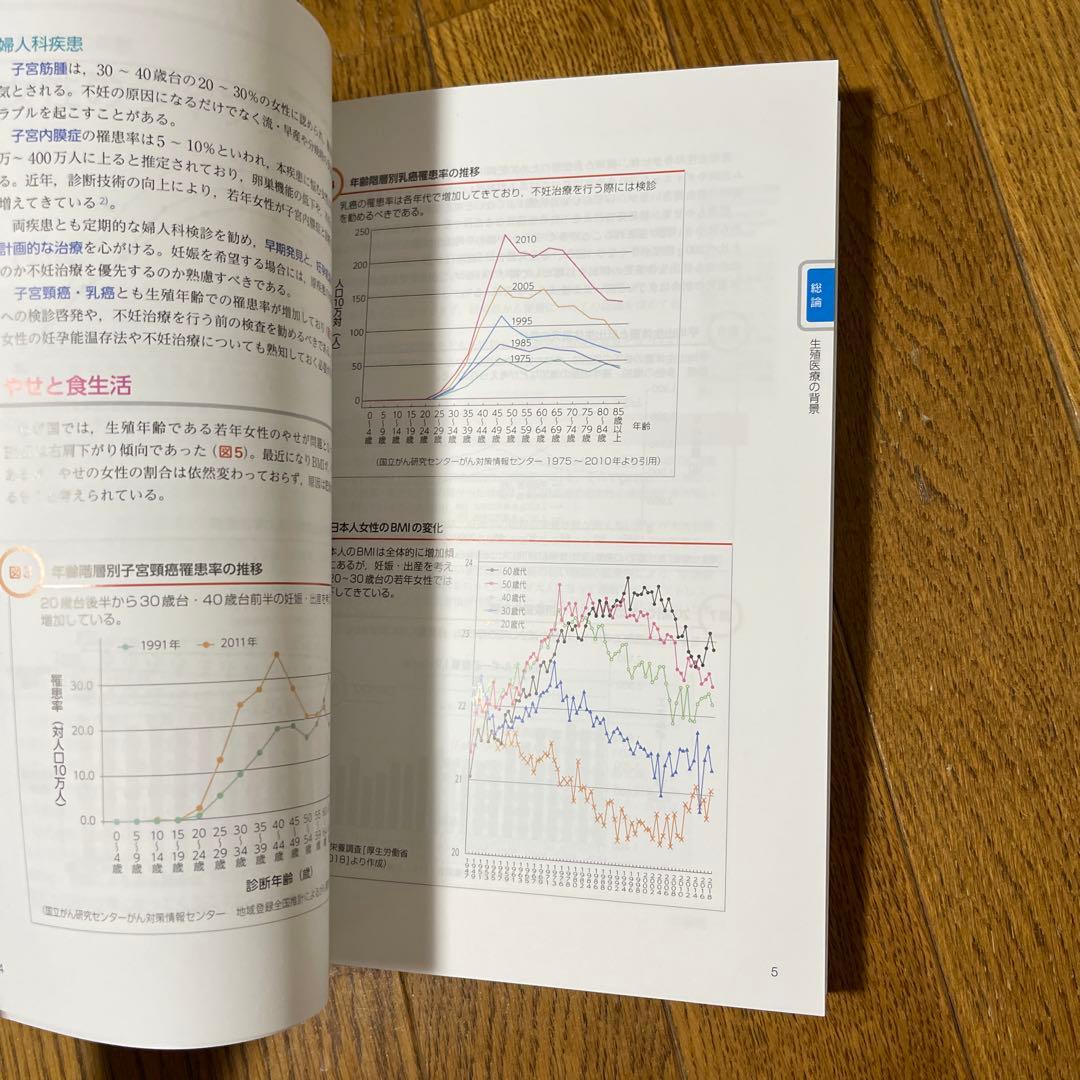 婦人科疾患
子宮筋腫は，30 ～ 40歳台の20 ～ 30％の女性に認められ，
気とされる。不妊の原因になるだけでなく流・早産や分娩時
ラブルを起こすことがある。
子宮内膜症の罹患率は5 ～ 10％といわれ，本疾患に
万～ 400万人に上ると推定されており，卵巣機能の低下や，
る。近年，診断技術の向上により，若年女性が子宮内膜症と
増えてきている 2)。
両疾患とも定期的な婦人科検診を勧め，早期発見と，
計画的な治療を心がける。妊娠を希望する場合には，原疾患
のか不妊治療を優先するのか熟慮すべきである。
子宮頸癌・乳癌とも生殖年齢での罹患率が増加しており
への検診啓発や，不妊治療を行う前の検査を勧めるべきである
女性の妊孕能温存法や不妊治療についても熟知しておく必要が
やせと食生活
国では，生殖年齢である若年女性のやせが問題と
は右肩下がり傾向であった（図5）。最近になりBMIが
やせの女性の割合は依然変わっておらず，原因は
考えられている。
図3
年齢階層別子宮頸癌罹患率の推移
20歳台後半から30歳台・40歳台前半の妊娠・出産を
増加している。
1991年 2011年
罹患率（対人口10万人）
30.0
20.0
10.0
0.0
0～4歳 5～9歳 10～14歳 15～19歳 20～24歳 25～29歳 30～34歳 35～39歳 40～44歳 45～49歳 50～54歳
診断年齢（歳）
（国立がん研究センターがん対策情報センター 地域登録全国推計による
4
年齢階層別乳癌罹患率の推移
乳癌の罹患率は各年代で増加してきており，不妊治療を行う際には検診
を勧めるべきである。
人口10万対（人）
250
200
150
100
50
0
2010
2005
1995
1985
1975
0～4歳 5～9歳 10～14歳 15～19歳 20～24歳 25～29歳 30～34歳 35～39歳 40～44歳 45～49歳 50～54歳 55～59歳 60～64歳 65～69歳 70～74歳 75～79歳 80～84歳 85歳以上
年齢
（国立がん研究センターがん対策情報センター 1975～2010年より引用）
日本人女性のBMIの変化
本人のBMIは全体的に増加傾
にあるが，妊娠・出産を考え
20～30歳台の若年女性では
してきている。
24
23
22
21
20
60歳代
50歳代
40歳代
30歳代
20歳代
栄養調査［厚生労働省
018］より作成）
総論
生殖医療の背景
5